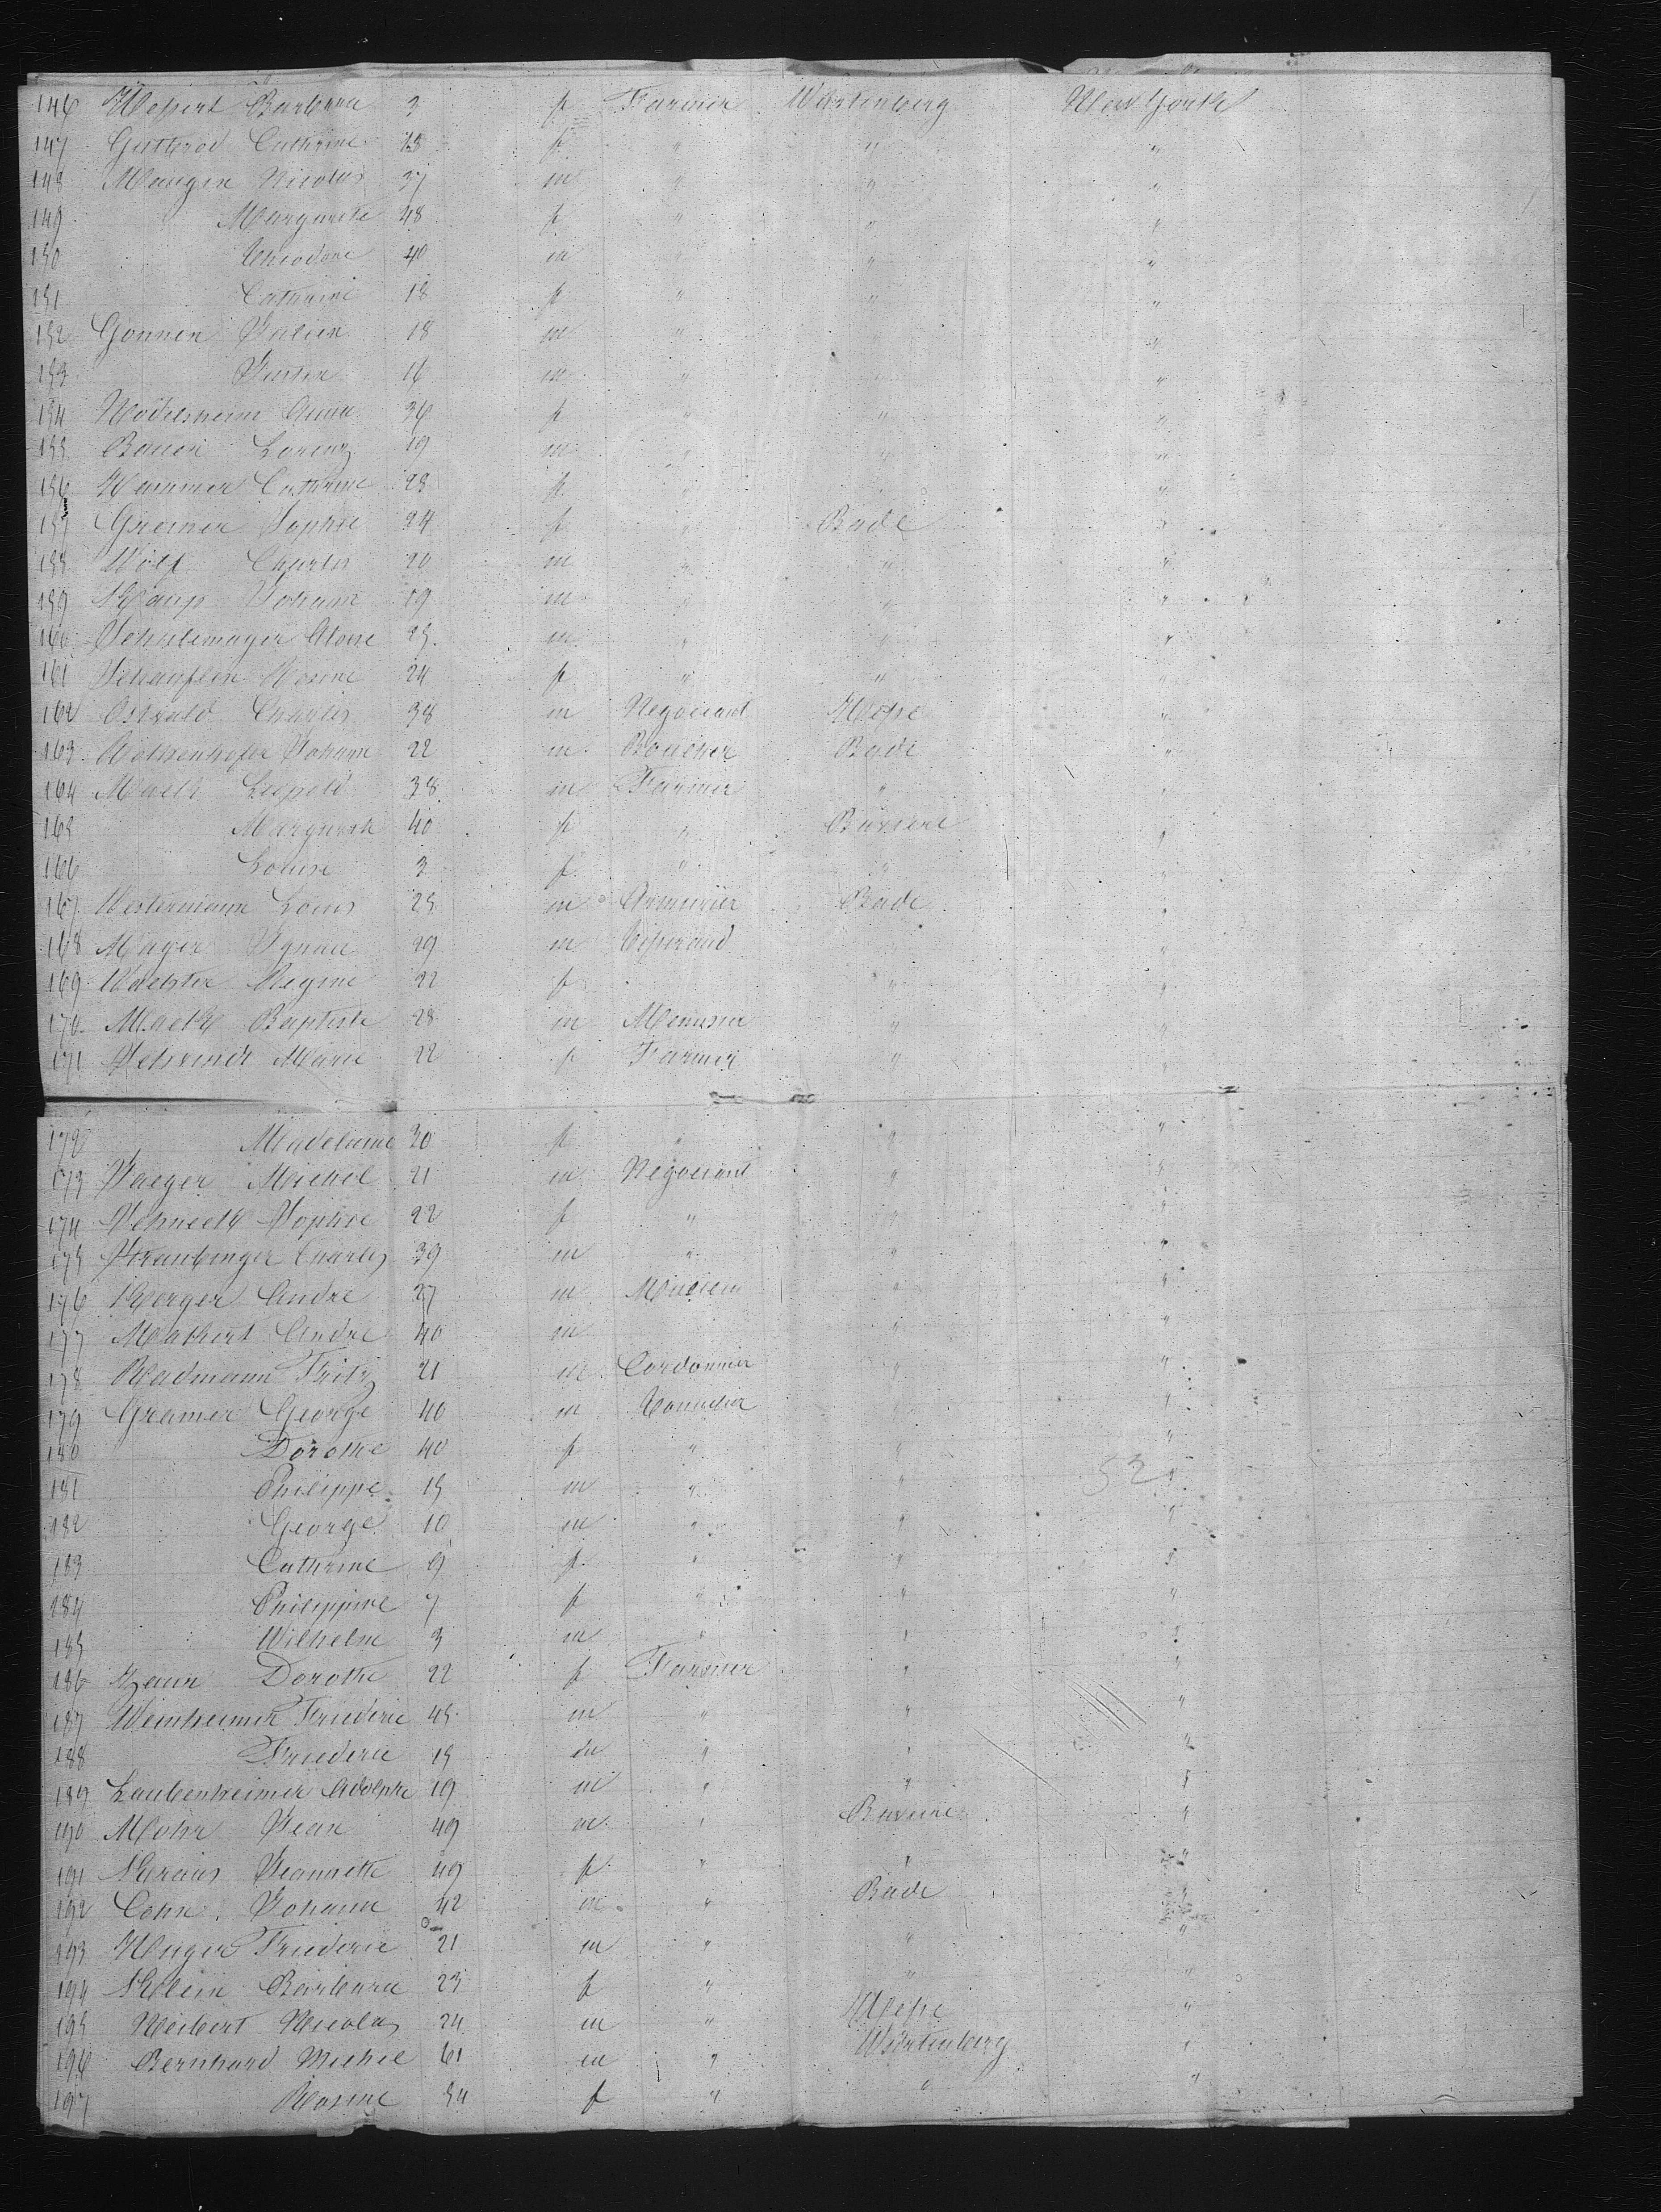 146 Hessert Barbara 3 f Farmer Würtenberg New York
147 Guthrod Cathrine 23 f " " "
148 Maugin Nicolas 37 m " " "
149 Margarete 48 f " " "
150 Theodore 40 m " " "
151 Cathrine 18 f " " "
152 Gonnen Julien 18 m " "
153 16 m " " "
154 Anna 36 f " " "
155 Bauer Lorenz 19 m " " "
156 Hammer Cathrine 23 f " " "
157 Greiner Sophie 24 f " Bade "
158 Wolf Charles 20 m " " "
159 Kaup Johann 19 m " " "
160 Aloise 25 m " " "
161 Schaufler Rosine 24 f " " "
162 Oswald Charles 38 m Negociant Hesse "
163 Johann 22 m Boucher Bade "
164 Mack Leopold 38 m Farmer " "
165 Margareth 40 f " Baviere "
166 Louise 3 f " " "
167 Westermann Louis 25 m Armurier Bade "
168 Mayer Ignace 29 m "
169 Regine 22 f " "
170 Mack Baptiste 28 m Menusier " "
171 Marie 22 f Farmer " "
172 Madelaine 20 f " " "
173 Jaeger Michel 21 m Negociant " "
174 Schneck Sophie 22 f " " "
175 Straubinger Charles 39 m " " "
176 Herger Andre 27 m Musicien " "
177 Mathert Andre 40 m " "
178 Radmann Fritz 21 m Cordonnier " "
179 Gramer George 40 m Tonnelier "
180 Dorothe 40 f " " "
181 Philippe 15 m " " 52 "
182 George 10 m " " "
183 Cathrine 9 f " " "
184 Philippine 7 f " " "
185 Wilhelm 3 m " " "
186 Zaun Dorothe 22 f Farmer " "
187 Weinheimer Friederic 45 m " " "
188 Friederic 15 m " " "
189 Laubenheimer Adolphe 19 m " " "
190 Mohr Jean 49 m " Baviere "
191 Kraus Jeannette 49 f " " "
192 Cohn Johann 42 m " Bade "
193 Friederic 21 m " " "
194 Klein Barbara 23 f " " "
195 Weibert Nicolas 24 m " Hesse "
196 Bernhard Michel 61 m " Würtenberg "
197 Rosine 54 f " " "